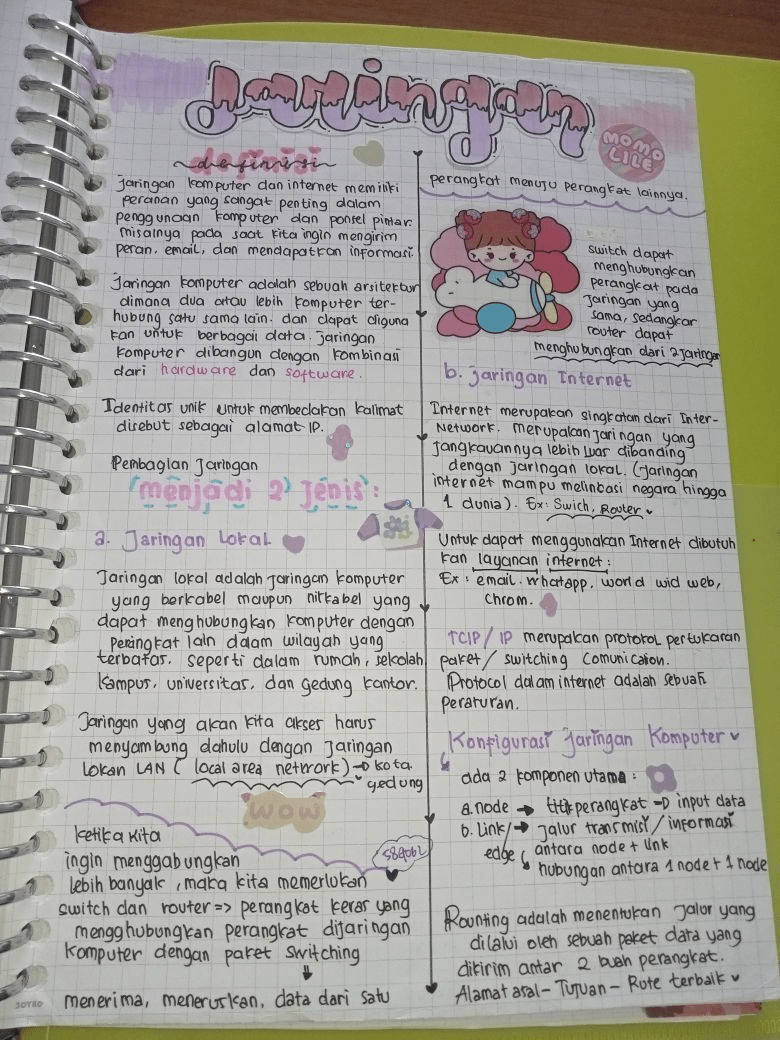 Jaringan
MOMO
LILE
definisi
Jaringan komputer dan internet memiliki
peranan yang sangat penting dalam
penggunaan komputer dan ponsel pintar.
misalnya pada saat kita ingin mengirim
peran, email, dan mendapatkan informasi.
Jaringan komputer adalah sebuah arsitektur
dimana dua atau lebih komputer ter-
hubung satu sama lain. dan dapat diguna
kan untuk berbagai data. Jaringan
komputer dibangun dengan kombinasi
dari hardware dan software.
Identitas unik untuk membedakan kalimat
disebut sebagai alamat IP.
Pembagian Jaringan
menjadi 2 Jenis :
a. Jaringan Lokal
Jaringan lokal adalah jaringan komputer
yang berkabel maupun nirkabel yang
dapat menghubungkan komputer dengan
perangkat lain dalam wilayah yang
terbatas. seperti dalam rumah, sekolah
kampus, universitas, dan gedung kantor.
Jaringan yang akan kita akses harus
menyambung dahulu dengan Jaringan
Lokan LAN ( local area network) → kota
gedung
WOW
ketika kita
ingin menggabungkan
lebih banyak , maka kita memerlukan
switch dan router => perangkat keras yang
mengghubungkan perangkat dijaringan
komputer dengan paket switching
menerima, meneruskan, data dari satu
JOYKO
perangkat menuju perangkat lainnya.
switch dapat
menghubungkan
perangkat pada
Jaringan yang
sama, sedangkan
router dapat
menghubungkan dari 2 jaringan
b. Jaringan Internet
Internet merupakan singkatan dari Inter-
Network. merupakan jaringan yang
jangkauannya lebih luas dibanding
dengan jaringan lokal. (jaringan
internet mampu melintasi negara hingga
1 dunia). Ex: Swich, Router
Untuk dapat menggunakan Internet dibutuh
kan layanan internet :
Ex : email. whatapp. world wid web,
Chrom.
TCIP / IP merupakan protokol pertukaran
paket / switching Comunication.
Protocol dalam internet adalah sebuah
peraturan.
Konfigurasi Jaringan Komputer
ada 2 komponen utama :
a. node → titik perangkat → input data
b. Link/ → jalur transmisi / informasi
edge antara node + link
hubungan antara 1 node + 1 node
Rounting adalah menentukan Jalur yang
dilalui oleh sebuah paket data yang
dikirim antar 2 buah perangkat.
Alamat asal - Tujuan - Rute terbaik